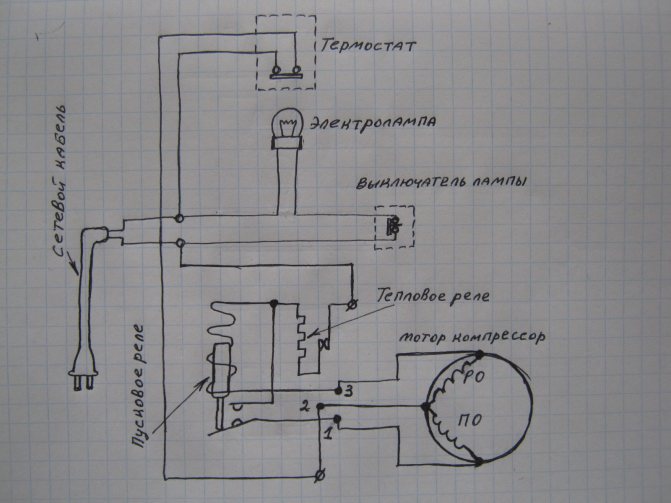 Термостат
Электролампа
Выключатель лампы
Сетевой кабель
Тепловое реле
Мотор компрессор
Пусковое реле
3
РО
2
ПО
1